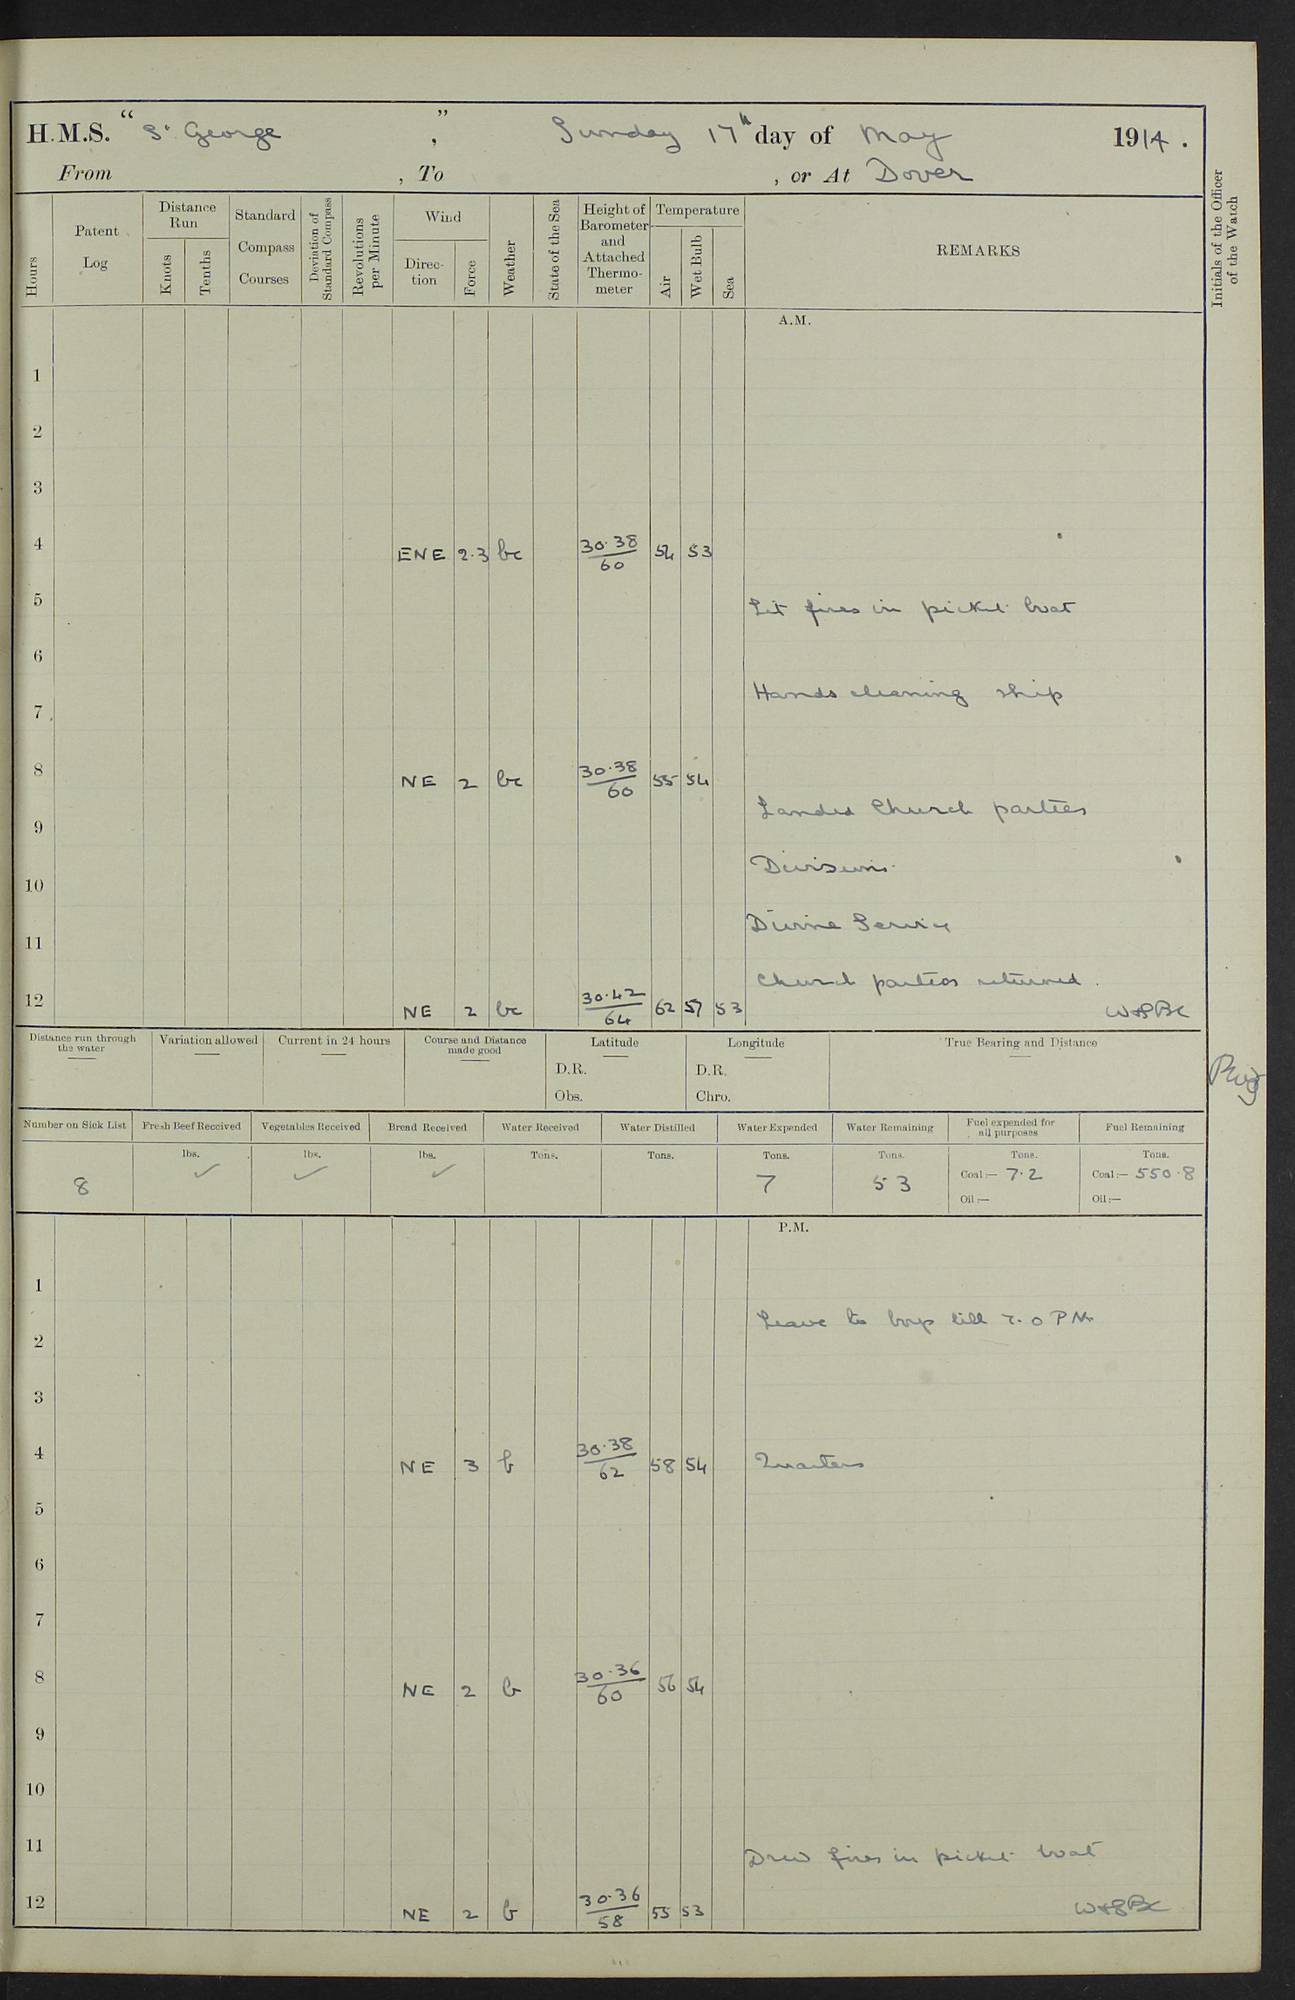 H.M.S. “ St George ” , Sunday 17th day of May 1914.
From , To , or At Dover
Hours
Patent Log
Distance Run
Knots
Tenths
Standard Compass Courses
Deviation of Standard Compass
Revolutions per Minute
Wind
Direc-tion
Force
Weather
State of the Sea
Height of Barometer and Attached Thermo-meter
Temperature
Air
Wet Bulb
Sea
REMARKS
Initials of the Officer of the Watch
A.M.
1
2
3
4 ENE 2.3 bc 30.38/60 54 53
5 Lit fires in picket boat
6
Hands cleaning ship
7
8 NE 2 bc 30.38/60 55 54
Landed Church parties
9
Divisions.
10
Divine Service
11
Church parties returned.
12 NE 2 bc 30.42/64 62 57 53
Distance run through the water
Variation allowed
Current in 24 hours
Course and Distance made good
Latitude
D.R.
Obs.
Longitude
D.R.
Chro.
True Bearing and Distance
Number on Sick List
8
Fresh Beef Received
lbs.
✓
Vegetables Received
lbs.
✓
Bread Received
lbs.
✓
Water Received
Tons.
Water Distilled
Tons.
Water Expended
Tons.
7
Water Remaining
Tons.
53
Fuel expended for all purposes
Tons.
Coal:— 7.2
Oil:—
Fuel Remaining
Tons.
Coal:— 550.8
Oil:—
P.M.
1
Leave to boys till 7.0 PM
2
3
4 NE 3 b 30.38/62 58 54 Quarters
5
6
7
8 NE 2 b 30.36/60 56 54
9
10
11 Drew fires in picket boat
12 NE 2 b 30.36/58 55 53